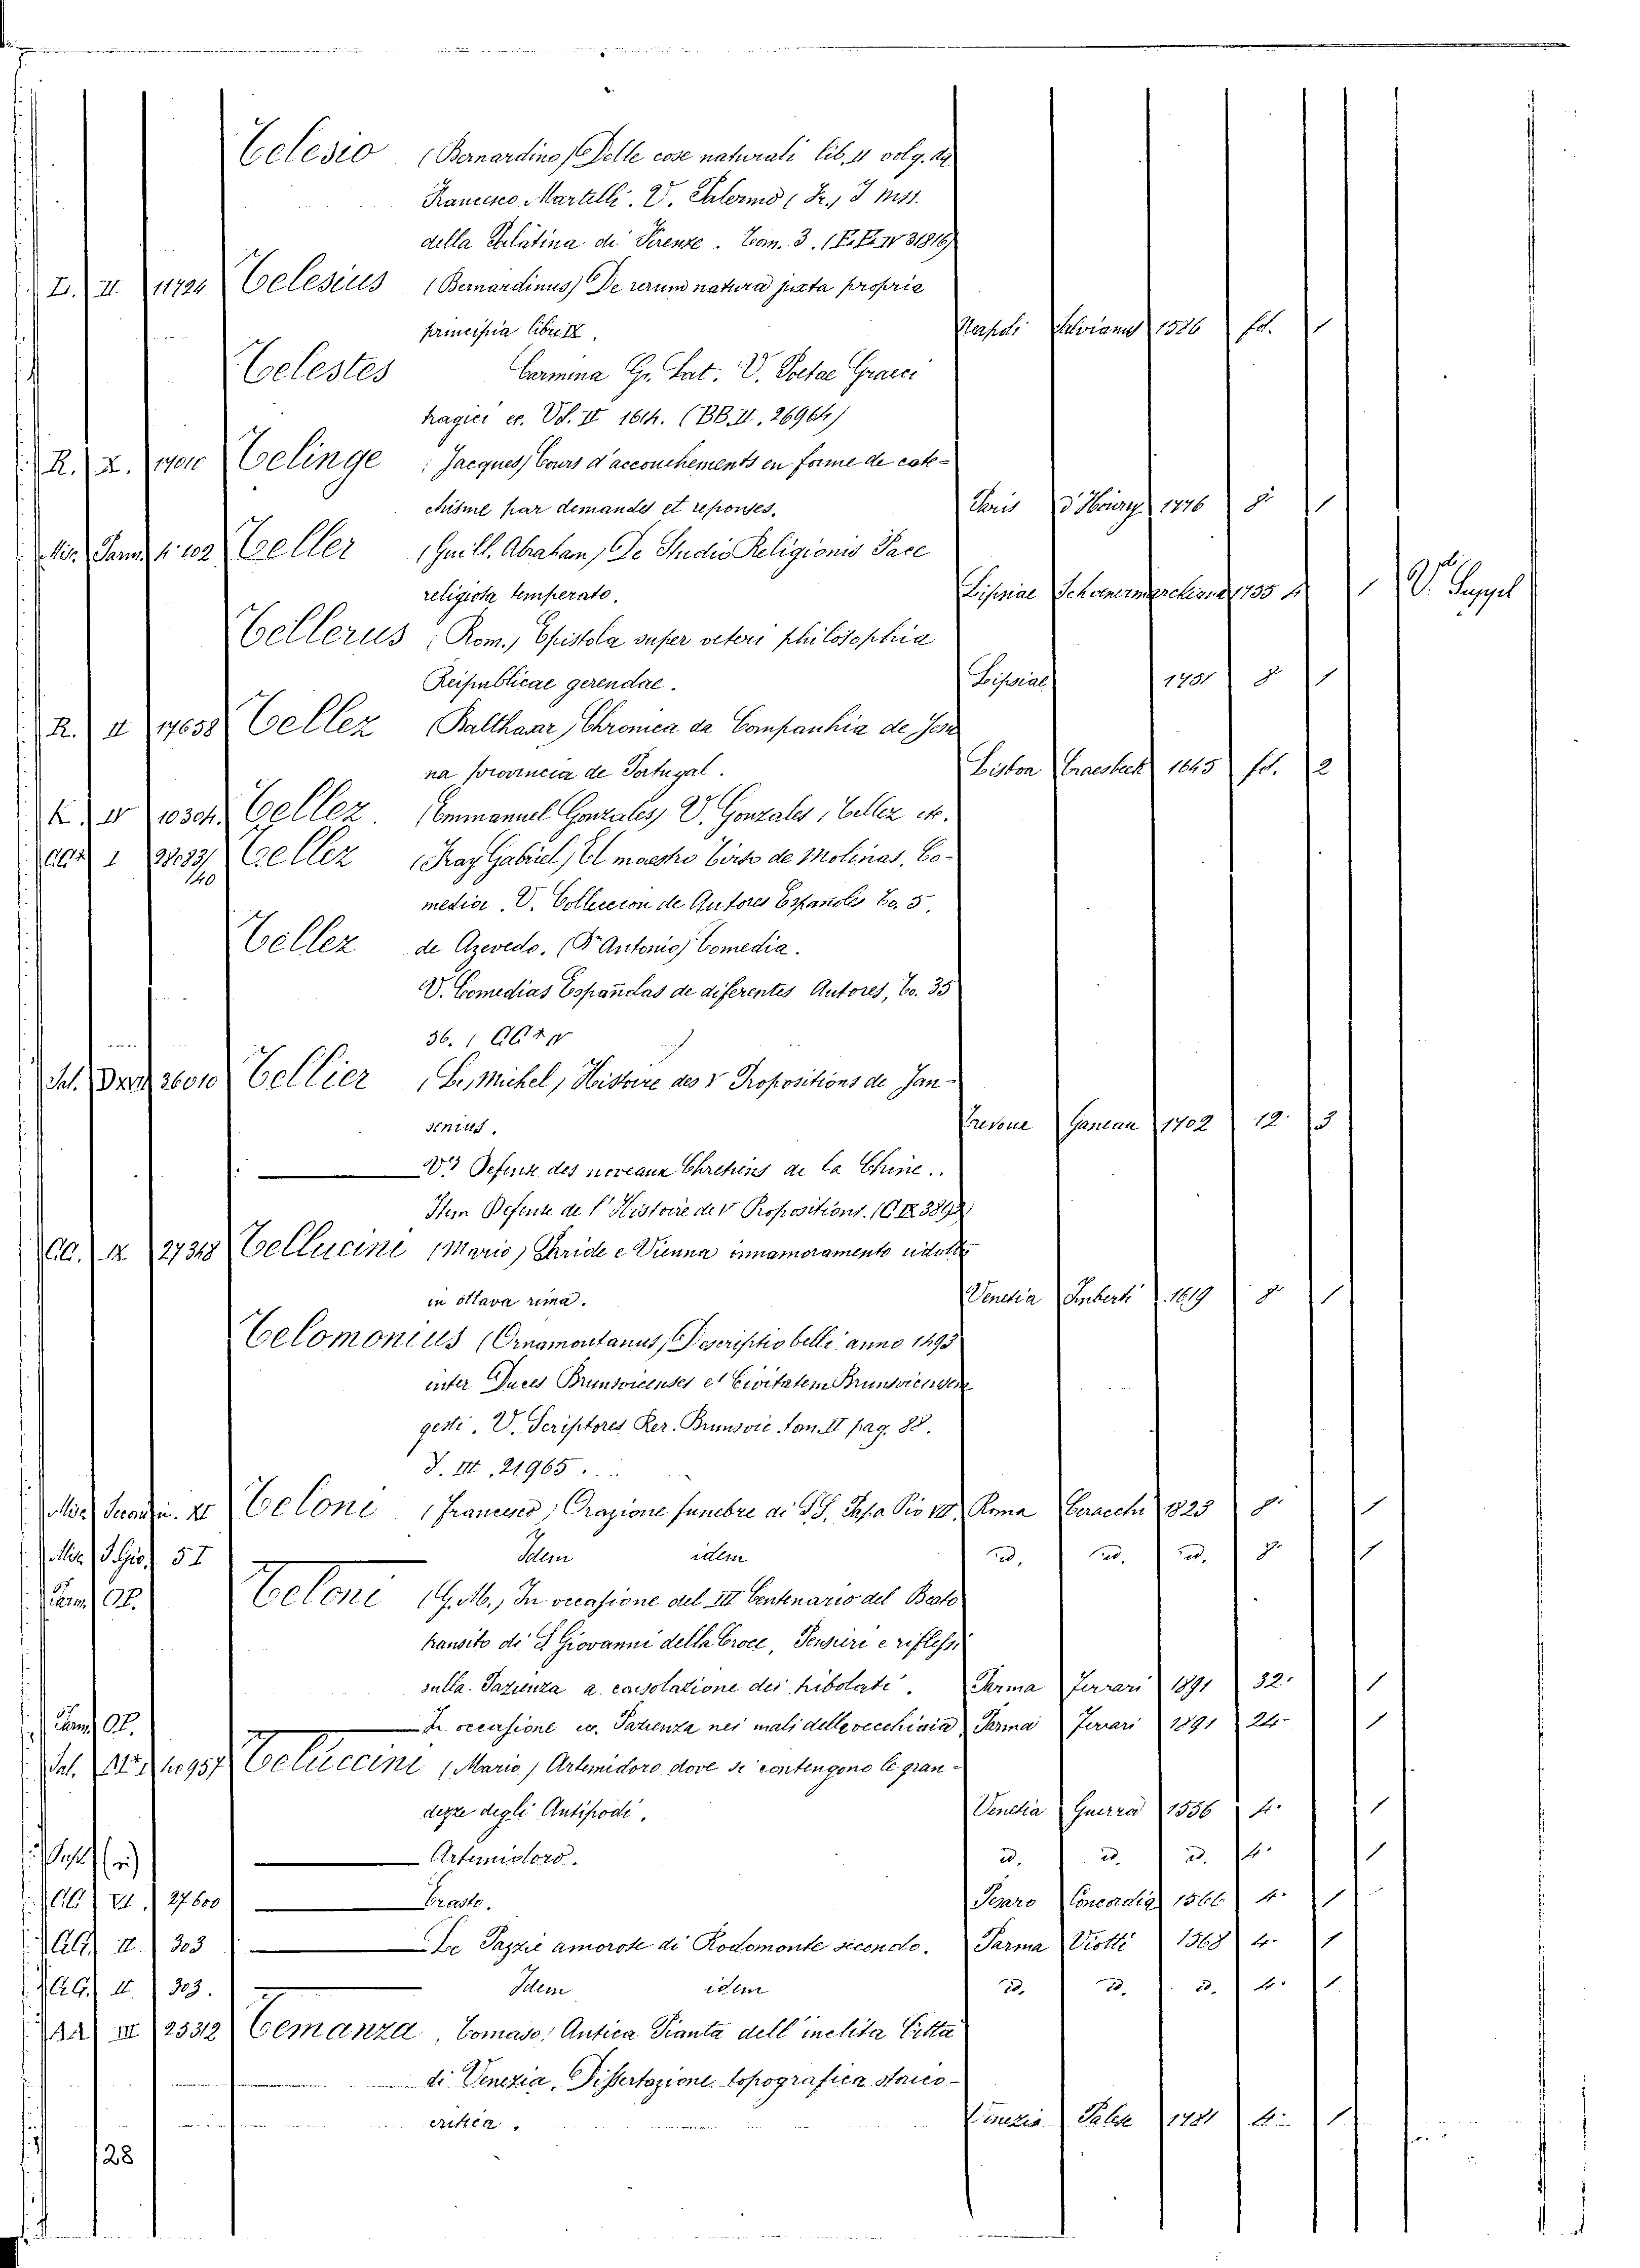 Telesio (Bernardino) Delle cose naturali lib. II volg. da
Francesco Martelli. V. Palermo (Fr.) I mss.
della Palatina di Firenze. Tom. 3. (F.F. IV 31816)
L. II. 11724 Telesius (Bernardinus) De rerum natura juxta propria
principia libri IX. Napoli Salvianus 1586 fol. 1
Telestes Carmina Gr. Lat. V. Poetae Graeci
tragici ec. Vol. II 16th. (BB. II. 26964)
R. X. 17010 Telinge (Jacques) Cours d'accouchements en forme de cate-
chisme par demandes et reponses. Paris d'Houry 1776 8° 1
Mis. Parm. f° 102 Teller (Guill. Abrahan) De Studio Religionis Pace
religiosa temperato. Lipsiae Schoenermerckiana 1735 4 1 V. Suppl
Tellerus (Rom.) Epistola super veteri philosophia
Reipublicae gerendae. Lipsiae 1751 8 1
R. II 17658 Tellez (Balthasar) Chronica da Companhia de Jesu
na provincia de Portugal. Lisboa Craesbeck 1645 fol. 2
K IV 10304 Tellez. (Emmanuel Gonzales) V. Gonzales, Tellez etc.
AA I 27083/140 Tellez (Fray Gabriel) El maestro Tirso de Molinas, Co-
media. V. Colleccion de Autores Españoles To. 5.
Tellez de Azevedo. (Dr Antonio) Comedia.
V. Comedias Españolas de diferentes Autores, To. 35
36. (AA X IV )
Sal. 26010 Tellier (Le, Michel) Histoire des V Propositions de Jan-
senius. Trevoux Ganeau 1702 12° 3
Defense des noveaux Chretiens de la Chine.
Item Defense de l'Histoire de V Propositions. (C. IX 3892)
AA. IX 27318 Tellucini (Mario) Paride e Vienna innamoramento ridotto
in ottava rima. Venetia Imberti 1619 8° 1
Telomonius (Ornamontanus) Descriptio belli anno 1493
inter Duces Brunsvicenses et Civitatem Brunsvicensem
gesti. V. Scriptores Rer. Brunsvic. tom. II pag. 88.
J. III. 21965.
Mis. Teloni (Francesco) Orazione funebre di S.S. Papa Pio VII Roma Ceracchi 1823 8° 1
Mis. S. Gio. 5 I Idem idem id. id. id. 8° 1
Parm. Ol. Teloni (G. M.) In occasione del III Centenario del Beato
transito di S Giovanni della Croce, Pensieri e riflessi
sulla Pazienza a consolatione dei tribolati. Parma Ferrari 1891 32° 1
Parm. Ol. In occasione ec. Pazienza nei mali della vecchiaia Parma Ferrari 1891 24° 1
Sal. 10957 Teluccini (Mario) Artemidoro dove si contengono le gran-
dezze degli Antipodi. Venetia Guerra 1556 4° 1
Artemidoro. id. id. id. 4° 1
AA VI. 27600 Erasto. Pesaro Concordia 1566 4° 1
AA II. 303 Le Pazzie amorose di Rodomonte secondo. Parma Viotti 1568 4° 1
AA. II. 303. Idem idem id. id. id. 4° 1
AA III 25312 Temanza, Tomaso, Antica Pianta dell'inclita Citta
di Venezia, Dissertazione topografica storico-
critica. Venezia Palese 1781 4° 1
128